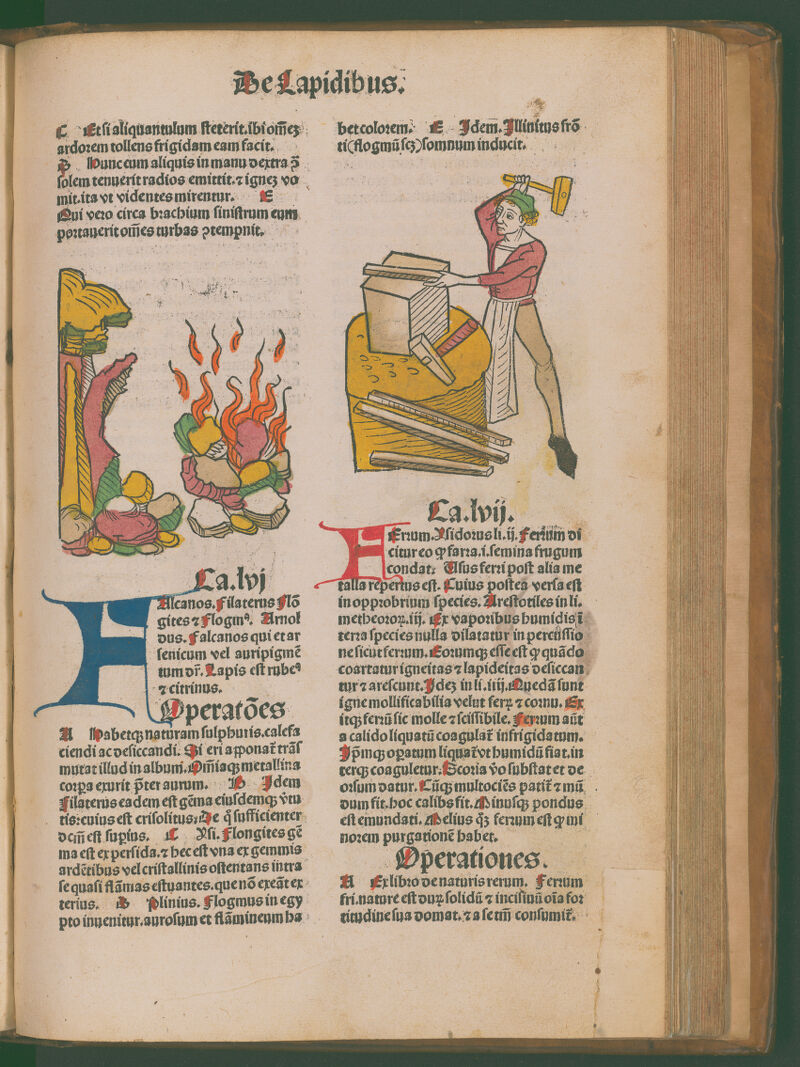 De Lapidibus.
C Et si aliquantulum steterit.ibi om̄eꝫ
ardorem tollens frigidam eam facit.
D Hunc eum aliquis in manu dextra ꝯ̄
solem tenuerit radios emittit.⁊ igneꝫ vo
mit.ita vt videntes mirentur. E
Qui vero circa brachium sinistrum eum
portauerit om̄es turbas ꝯtempnit.
Ca.lvj
FAlcanos.Filaterus Flō
gites ⁊ Flogmꝰ. Arnol
dus.Falcanos qui et ar
senicum vel auripigmē
tum dr̄. Lapis est rubeꝰ
⁊ citrinus.
Operatōes
A Habetqꝫ naturam sulphuris.calefa
ciendi ac desiccandi. Si eri apponat̄ trās
mutat illud in album. Om̄iaqꝫ metallina
corpa exurit p̄ter aurum. B Idem
Filaterus eadem est gēma eiusdemqꝫ v̄tu
tis:cuius est crisolitus: De q̄ sufficienter
dcm̄ est supius. C Ysi. Flongites gē
ma est ex persida.⁊ hec est vna ex gemmis
ardētibus vel cristallinis ostentans intra
se quasi flāmas estuantes.que nō exeāt ex
terius. D Plinius. Flogmus in egy
pto inuenitur.aurosum et flāmineum ha
bet colorem. E Idem. Illinitus frō
ti (flogmū scꝫ) somnum inducit.
Ca.lvij.
FErrum. Ysidorus li.ij. Ferrum di
citur eo ꝙ farra.i.semina frugum
condat. Usus ferri post alia me
talla repertus est. Cuius postea versa est
in opprobrium species. Arestotiles in li.
metheoroꝝ.iij. Ex vaporibus humidis ī
terra species nulla dilatatur in percussio
ne sicut ferrum. Eorumqꝫ esse est ꝙ quādo
coartatur igneitas ⁊ lapideitas desiccan
tur ⁊ arescunt. Ideꝫ in li.iiij. Quedā sunt
igne mollificabilia velut ferꝝ ⁊ cornu. Ex
itqꝫ ferrū sic molle ⁊ scissibile. Ferrum aūt
a calido liquatū coagulat̄ infrigidatum.
Ip̄mqꝫ opatum liquat̄ vt humidū fiat.in
terqꝫ coaguletur. Scoria v̄o substat et de
orsum datur. Cūqꝫ multociēs patit̄ ⁊ mū
dum fit.hoc calibs fit. Minusqꝫ pondus
est emundati. Melius qꝫ ferrum est ꝙ mi
norem purgationē habet.
Operationes.
A Ex libro de naturis rerum. Ferrum
fri.nature est durꝝ solidū ⁊ incisiuū oīa for
titudine sua domat.⁊ a se tm̄ consumit̄.